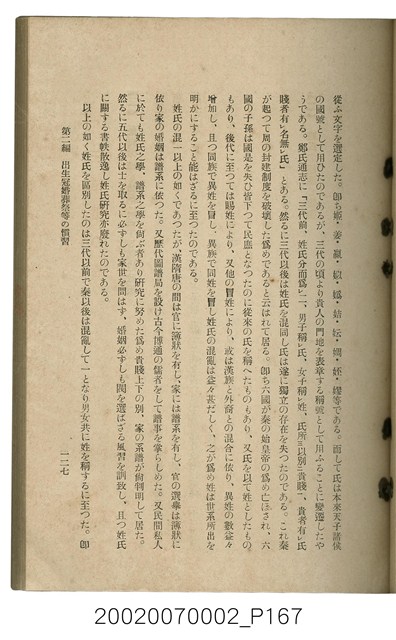 從ふ文字を選定した。卽ち姬・姜・嬴・姒・嬀・姞・妘・嫺・妊・嫪等である。而して氏は本來天子諸侯
の國號として用ひたのであるが、三代の頃より貴人の門地を表章する稱號として用ふることに變遷したや
うである。鄭氏通志に「三代前、姓氏分而爲レ二、男子稱レ氏、女子稱レ姓、氏所三以別二貴賤一、貴者有レ氏
賤者有レ名無レ氏」とある。然るに三代以後は姓氏を混同し氏は遂に獨立の存在を失つたのである。これ秦
が起つて周の封建制度を破壞した爲めであると云はれて居る。卽ち六國が秦の始皇帝の爲め亡ぼされ、六
國の子孫は國是を失ひ皆下つて民庶となつたのに從來の氏を稱へたものもあり、又氏を以て姓としたもの
もあり、後代に至つては賜姓により、又他の冒姓により、或は漢族と外裔との混合に依り、異姓の數益々
增加し、且つ同族で異姓を冒し、異族で同姓を冒し姓氏の混亂は益々甚だしく、之が爲め姓は世系所出を
明かにすること能はざるに至つたのである。
姓氏の混一以上の如くであつたが、漢隋唐の間は官に簿狀を有し、家には譜系を有し、官の選擧は簿狀に
依り家の婚姻は譜系に依つた。又歷代圖譜局を設け古今博通の儒者をして譜事を掌らしめた。又民間私人
に於ても姓氏之學、譜系之學を尙ぶ者あり硏究に努めた爲め貴賤上下の別、家の系譜が尙判明して居た。
然るに五代以後は士を取るに必ずしも家世を問はず、婚姻必ずしも閥を選ばざる風習を馴致し、且つ姓氏
に關する書帙散逸し姓氏硏究亦廢れたのである。
以上の如く姓氏を區別したのは三代以前で秦以後は混亂して一となり男女共に姓を稱するに至つた。卽
第二編　出生冠婚葬祭等の慣習
一二七
20020070002_P167